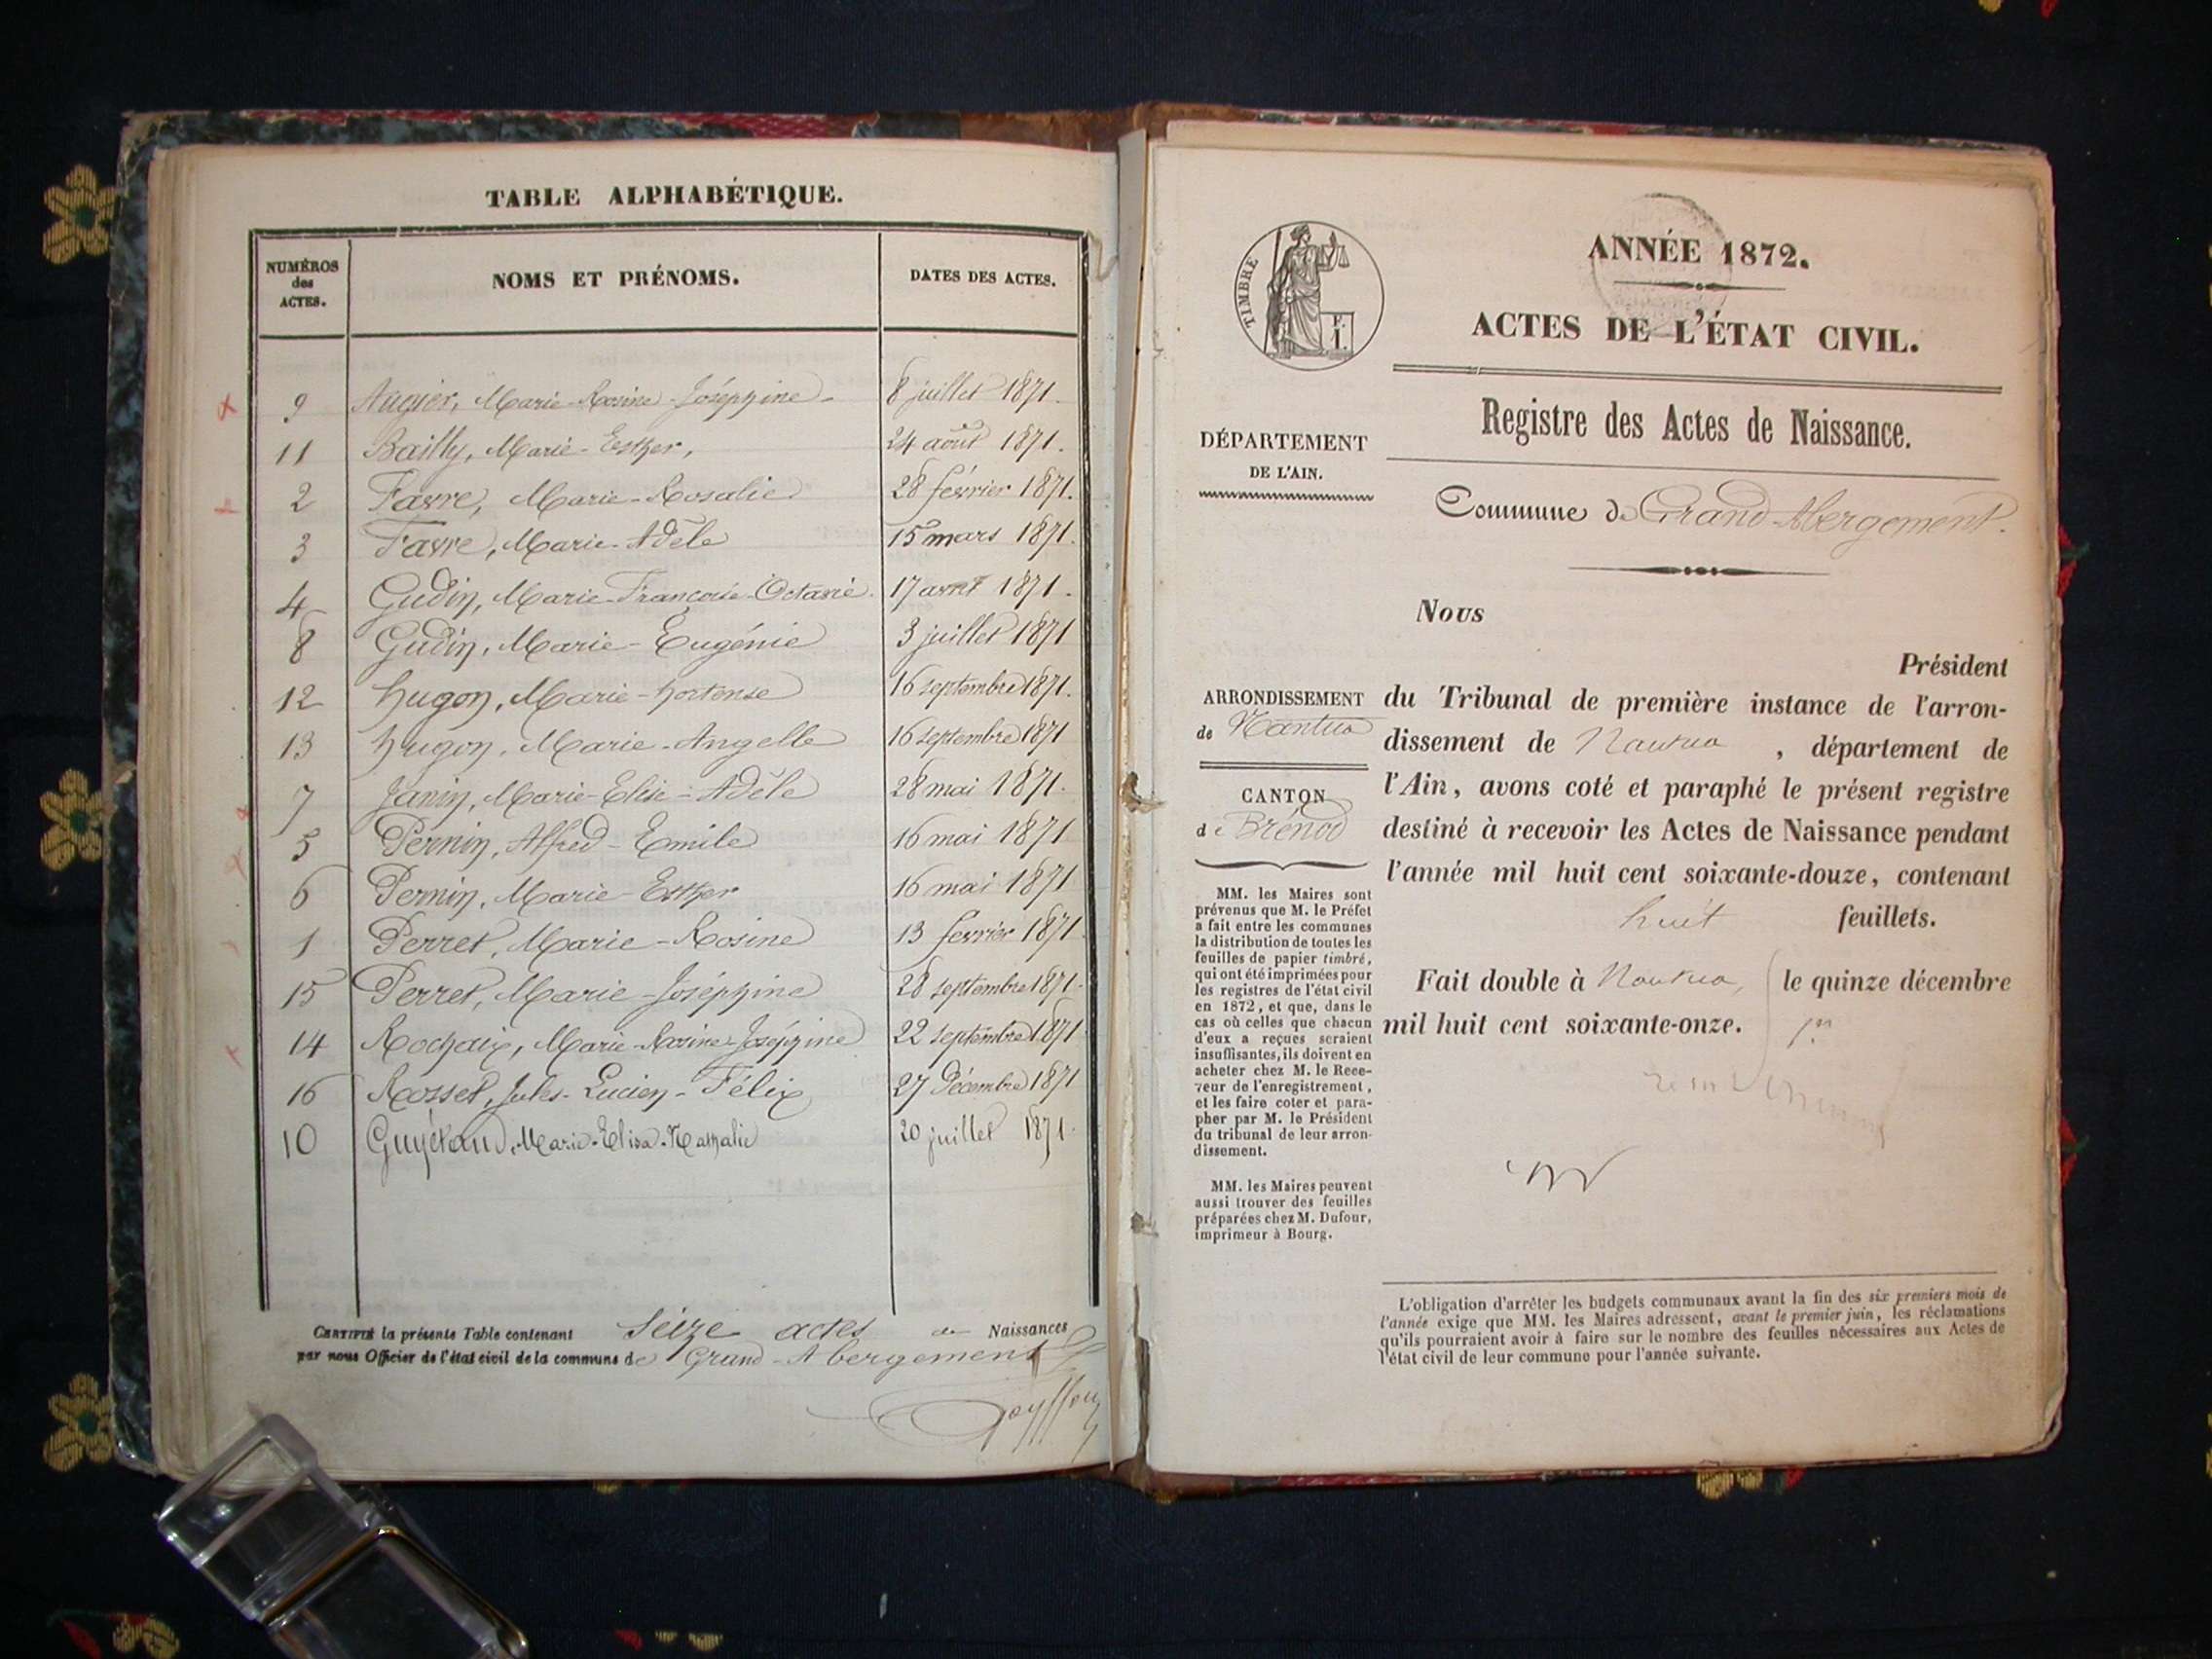 TABLE ALPHABÉTIQUE.
NUMÉROS des ACTES. NOMS ET PRÉNOMS. DATES DES ACTES.
9 Augier, Marie-Rosine-Joséphine 8 juillet 1871.
11 Bailly, Marie-Esther, 24 août 1871.
2 Favre, Marie-Rosalie 28 février 1871.
3 Favre, Marie-Adèle 15 mars 1871.
4 Gudin, Marie-Françoise-Octavie. 17 avril 1871.
8 Gudin, Marie-Eugénie 3 juillet 1871
12 Hugon, Marie-hortense 16 septembre 1871.
13 Hugon, Marie-Angelle 16 septembre 1871
7 Janin, Marie-Elise-Adèle 28 mai 1871.
5 Pernin, Alfred-Emile 16 mai 1871
6 Pernin, Marie-Esther 16 mai 1871
1 Perret, Marie-Rosine 13 février 1871.
15 Perret, Marie-Joséphine 28 septembre 1871.
14 Rochaix, Marie-Rosine-Joséphine 22 septembre 1871
16 Rosset, Jules-Lucien-Félix 27 Décembre 1871
10 Guyétand, Marie-Elisa-Nathalie 20 juillet 1871.
CERTIFIÉ la présente Table contenant Seize actes de Naissances
par nous Officier de l'état civil de la commune de Grand-Abergement
Goyffon
TIMBRE
ANNÉE 1872.
ACTES DE L'ÉTAT CIVIL.
Registre des Actes de Naissance.
DÉPARTEMENT
DE L'AIN.
Commune de Grand-Abergement.
ARRONDISSEMENT
de Nantua
CANTON
de Brénod
MM. les Maires sont
prévenus que M. le Préfet
a fait entre les communes
la distribution de toutes les
feuilles de papier timbré,
qui ont été imprimées pour
les registres de l'état civil
en 1872, et que, dans le
cas où celles que chacun
d'eux a reçues seraient
insuffisantes, ils doivent en
acheter chez M. le Rece-
veur de l'enregistrement,
et les faire coter et para-
pher par M. le Président
du tribunal de leur arron-
dissement.
MM. les Maires peuvent
aussi trouver des feuilles
préparées chez M. Dufour,
imprimeur à Bourg.
Nous
Président
du Tribunal de première instance de l'arron-
dissement de Nantua , département de
l'Ain, avons coté et paraphé le présent registre
destiné à recevoir les Actes de Naissance pendant
l'année mil huit cent soixante-douze, contenant
huit feuillets.
Fait double à Nantua, le quinze décembre
mil huit cent soixante-onze.
L'obligation d'arrêter les budgets communaux avant la fin des six premiers mois de
l'année exige que MM. les Maires adressent, avant le premier juin, les réclamations
qu'ils pourraient avoir à faire sur le nombre des feuilles nécessaires aux Actes de
l'état civil de leur commune pour l'année suivante.